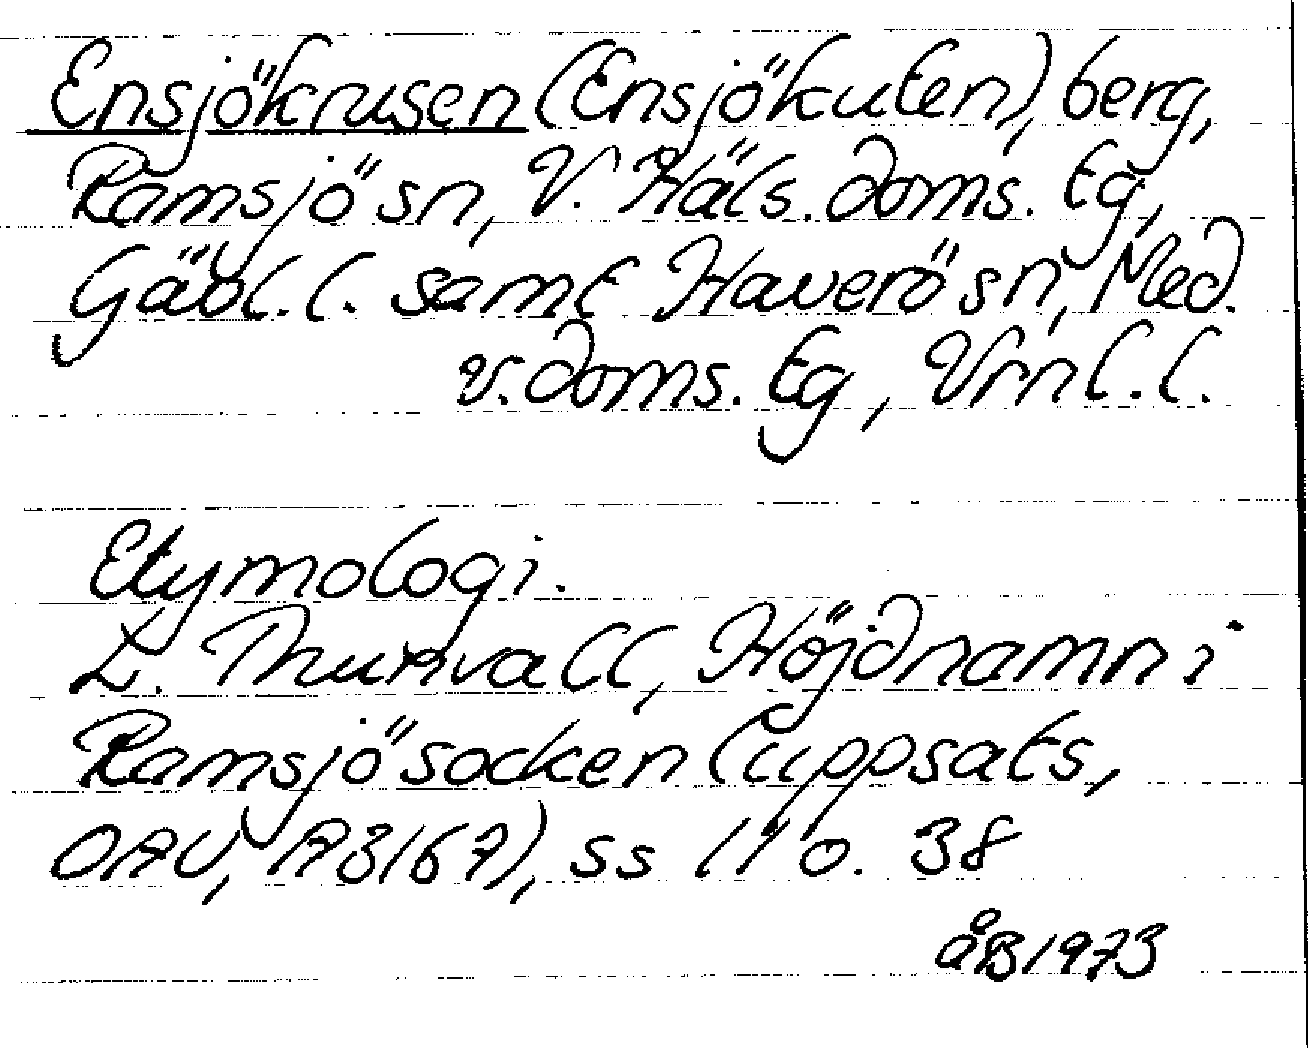 Ensjökrusen (Ensjökuten), berg,
Ramsjö sn, V. Häls. doms. tg,
Gävl. l. samt Haverö sn, Med.
v. doms. tg, Vrnl. l.
Etymologi.
L. Thurvall, Höjdnamn i
Ramsjö socken (uppsats,
OAU, A3167), ss 11 o. 38
åB 1973